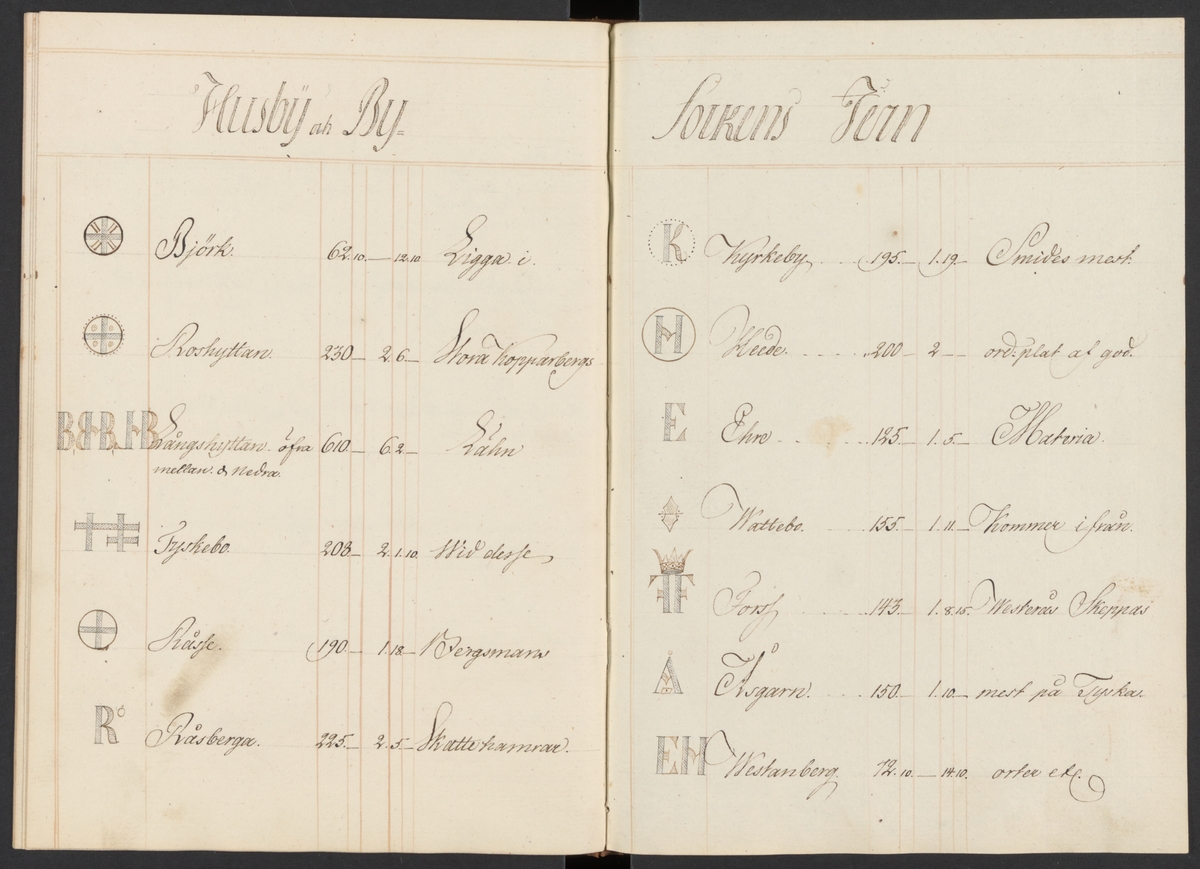 Husbÿ och By=
Björk. 62.10.— 12.10 Ligga i.
Roshyttan. 230— 2.6.— Stora Kopparbergs
BBBB Långshyttan. öfra 610.— 6.2— Lähn
mellan. & Nedra.
Tyskebo. 208.— 2.1.10. Wid desse
Råsse. 190.— 1.18.— Bergsmans
R Råsberga. 225.— 2.5.— Skattehamrar.
Sokens Jern
K Kyrkeby. 195.— 1.19.— Smides mest.
H Heede. 200— 2.— ord: plat af god.
E Ehre. 125. 1.5.— Materia.
Wattebo. 155.— 1.11.— Kommer ifrån.
Forss 143. 1.8.15. Westerås Skeppas
Å Åsgarn. 150. 1.10.— mest på Tyska
EH Westanberg. 72.10.— 14.10. orter etc.